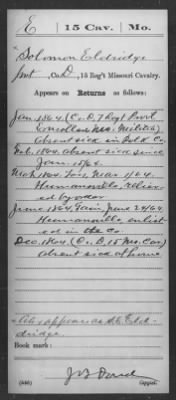 E 15 Cav. Mo.
Solomon Eldridge
Pvt., Co. D, 15 Reg't Missouri Cavalry.
Appears on Returns as follows:
Jan. 1864 (Co. D, 7 Regt Provl
Enrolled Mo. Militia)
Absent sick in Polk Co.
Feb. 1864 absent sick since
Jan.
Mch 1864 Loss, Mar 1/64.
Humansville,
by order
June 1864 Gain June 24/64
Humansville, enlist-
ed in the Co.
Dec. 1864 (Co. D, 15 Mo. Cav.)
Absent sick at home.
Also appears as Eld-
ridge
Book mark:
(546) Copyist.